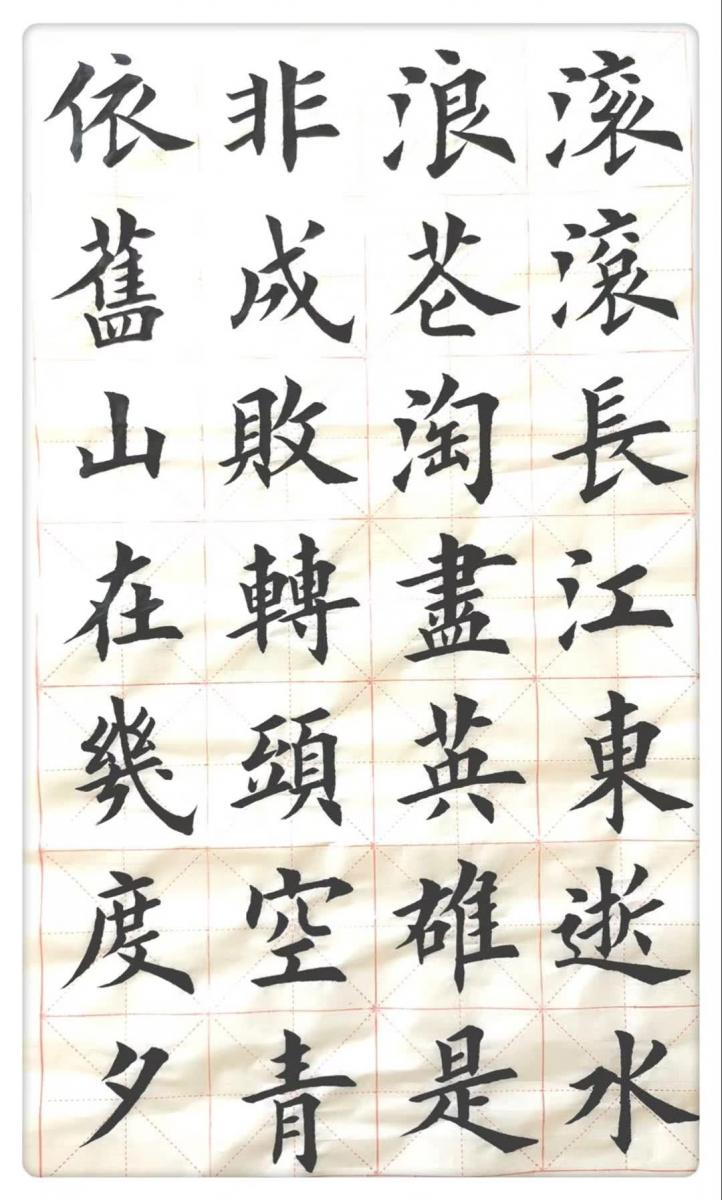 滚滾長江東逝水
浪芲淘盡英雄是
非成敗轉頭空青
依舊山在幾度夕